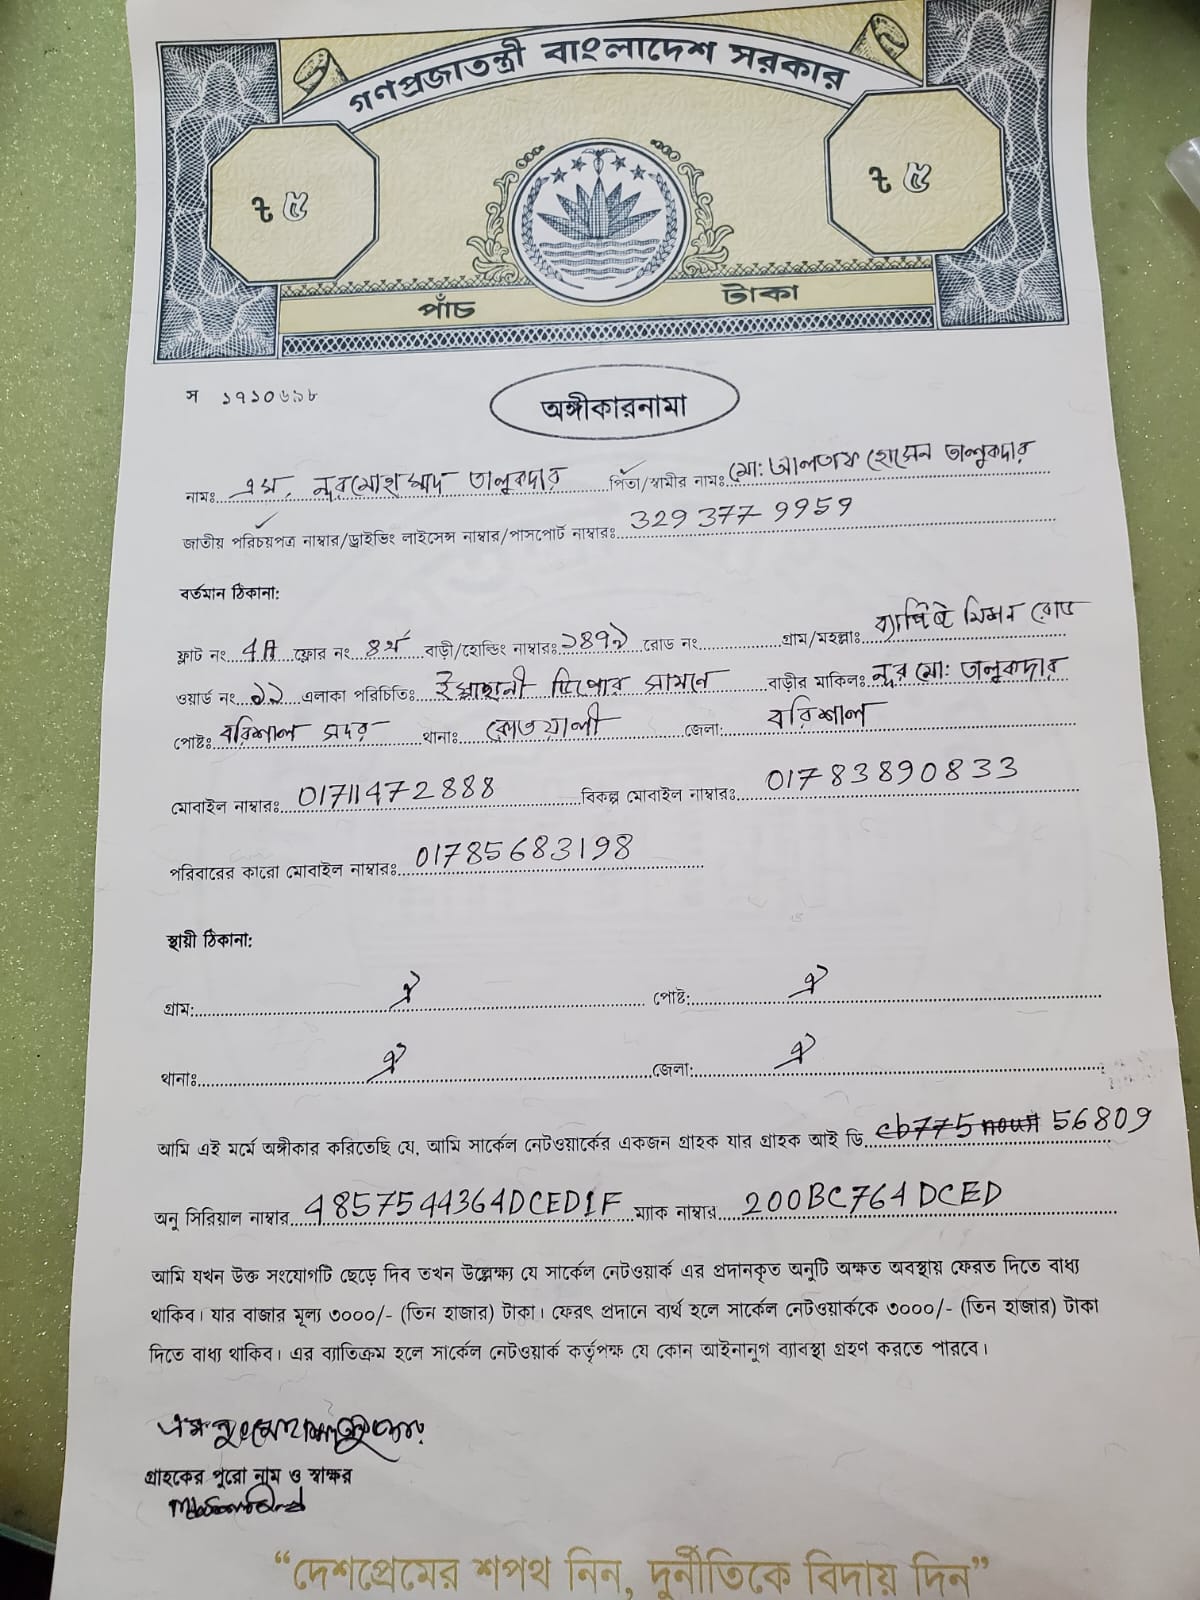 গণপ্রজাতন্ত্রী বাংলাদেশ সরকার
৳ ৫ ৳ ৫
পাঁচ টাকা
স ১৭১০৬৯৮
অঙ্গীকারনামা
নামঃ এম. নুরমোহাম্মদ তালুকদার পিতা/স্বামীর নাম: মো: আলতাফ হোসেন তালুকদার
জাতীয় পরিচয়পত্র নাম্বার/ড্রাইভিং লাইসেন্স নাম্বার/পাসপোর্ট নাম্বারঃ 329 377 9959
বর্তমান ঠিকানা:
ফ্লাট নং 4A ফ্লোর নং ৪র্থ বাড়ী/হোল্ডিং নাম্বারঃ রোড নং গ্রাম/মহল্লাঃ ব্যাপ্টিষ্ট মিশন রোড
ওয়ার্ড নং এলাকা পরিচিতিঃ ইস্পাহানী ডিপোর সামনে বাড়ীর মালিকঃ নুর মো: তালুকদার
পোষ্টঃ বরিশাল সদর থানাঃ কোতয়ালী জেলা: বরিশাল
মোবাইল নাম্বারঃ 01711472888 বিকল্প মোবাইল নাম্বারঃ 01783890833
পরিবারের কারো মোবাইল নাম্বারঃ 01785683198
স্থায়ী ঠিকানা:
গ্রাম: ঐ পোষ্ট: ঐ
থানাঃ ঐ জেলা: ঐ
আমি এই মর্মে অঙ্গীকার করিতেছি যে, আমি সার্কেল নেটওয়ার্কের একজন গ্রাহক যার গ্রাহক আই ডি 56809
অনু সিরিয়াল নাম্বার 4857544364DCED1F ম্যাক নাম্বার 200BC764DCED
আমি যখন উক্ত সংযোগটি ছেড়ে দিব তখন উল্লেক্ষ্য যে সার্কেল নেটওয়ার্ক এর প্রদানকৃত অনুটি অক্ষত অবস্থায় ফেরত দিতে বাধ্য
থাকিব। যার বাজার মূল্য ৩০০০/- (তিন হাজার) টাকা। ফেরৎ প্রদানে ব্যর্থ হলে সার্কেল নেটওয়ার্ককে ৩০০০/- (তিন হাজার) টাকা
দিতে বাধ্য থাকিব। এর ব্যাতিক্রম হলে সার্কেল নেটওয়ার্ক কর্তৃপক্ষ যে কোন আইনানুগ ব্যাবস্থা গ্রহণ করতে পারবে।
গ্রাহকের পুরো নাম ও স্বাক্ষর
“দেশপ্রেমের শপথ নিন, দুর্নীতিকে বিদায় দিন”